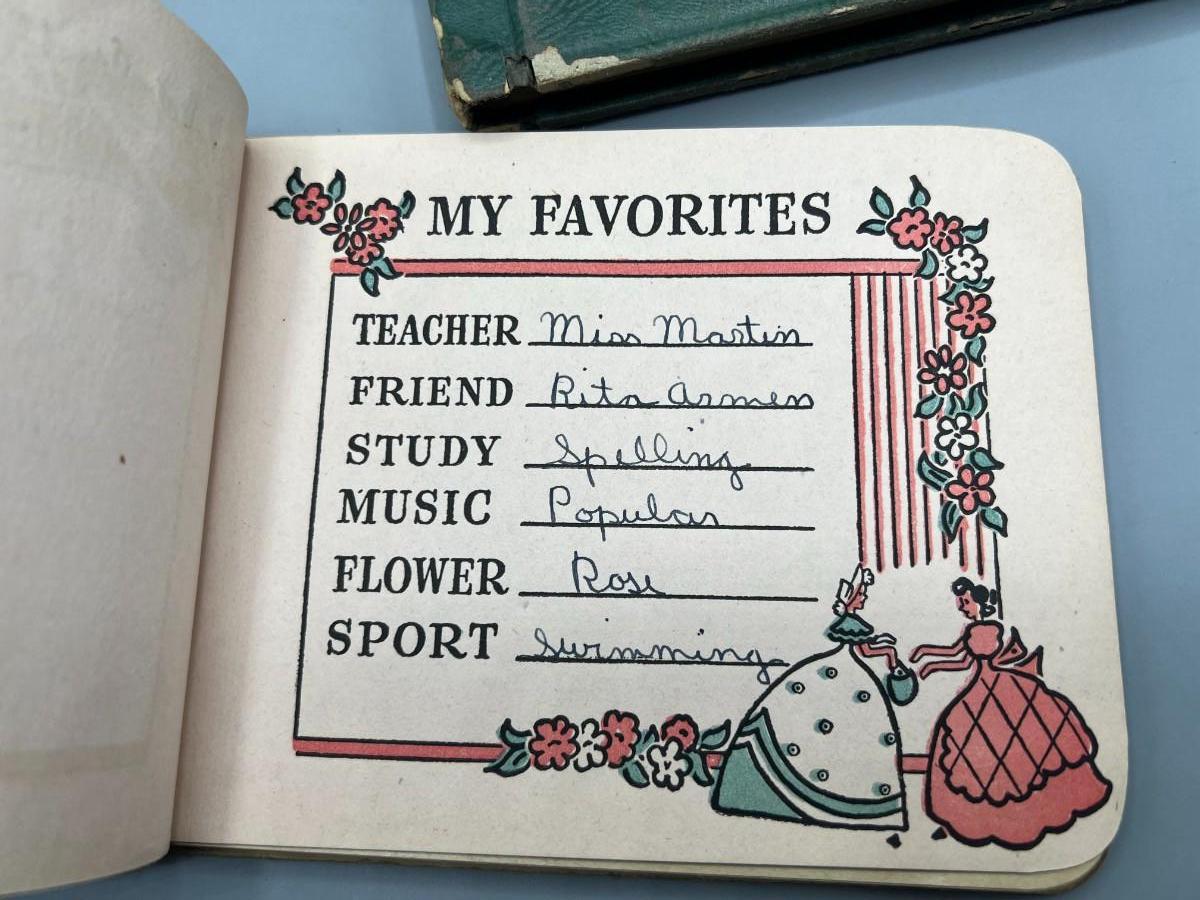 MY FAVORITES
TEACHER Miss Martin
FRIEND Rita Armen
STUDY Spelling
MUSIC Popular
FLOWER Rose
SPORT Swimming